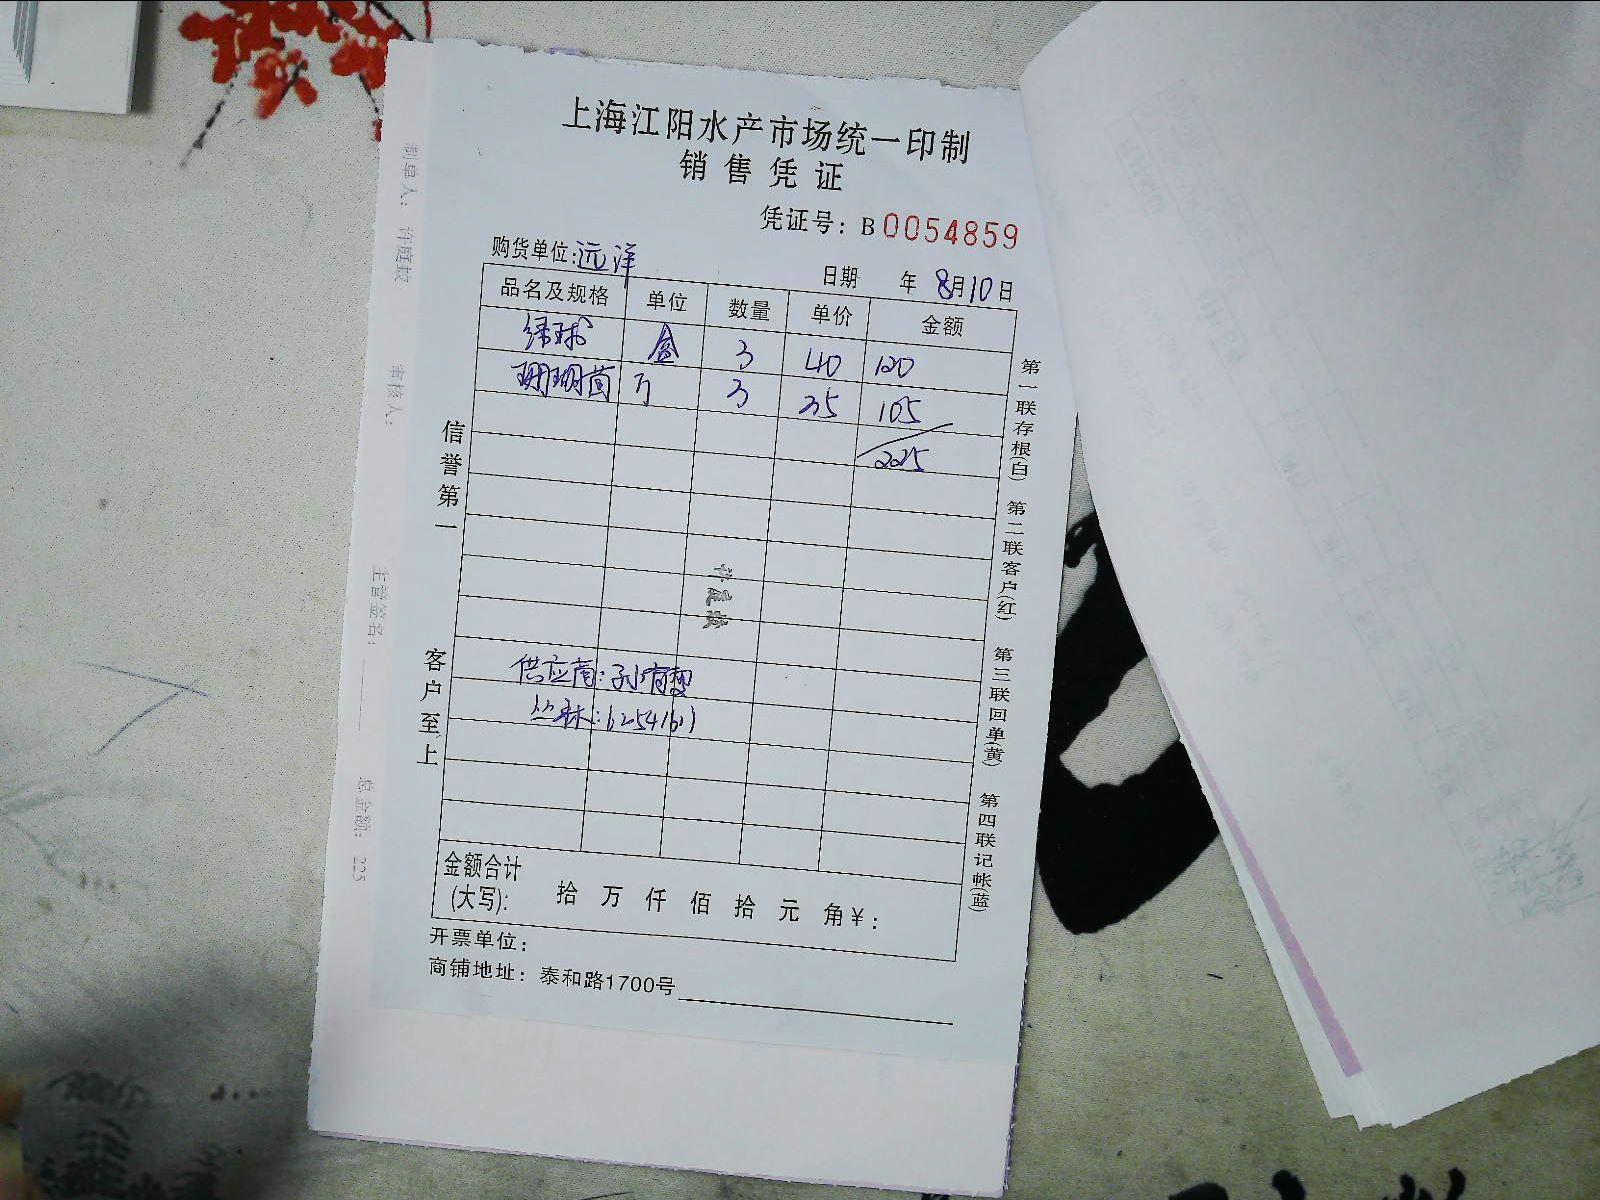 上海江阳水产市场统一印制
销售凭证
凭证号：B0054859
购货单位：远洋
日期 年 8月10日
品名及规格 单位 数量 单价 金额
绿球 盒 3 40 120
珊瑚茴 3 35 105
225
供应商：孙
金额合计
(大写)： 拾 万 仟 佰 拾 元 角￥：
开票单位：
商铺地址：泰和路1700号
信誉第一
客户至上
第一联存根(白)
第二联客户(红)
第三联回单(黄)
第四联记帐(蓝)
制单人：
审核人：
主管签名：
总金额：225